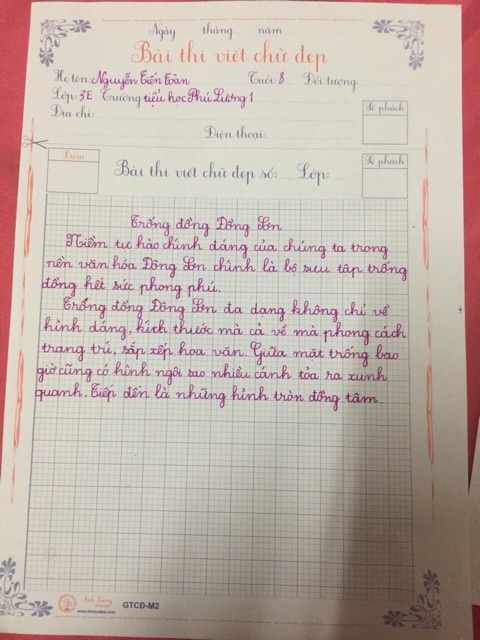 Ngày tháng năm
Bài thi viết chữ đẹp
Họ tên: Nguyễn Tiến Toàn Tuổi: 8 Đối tượng:
Lớp: 3E Trường tiểu học Phú Lương 1
Địa chỉ: Số phách
Điện thoại:
Điểm Số phách
Bài thi viết chữ đẹp số: Lớp:
Trống đồng Đông Sơn
Niềm tự hào chính đáng của chúng ta trong
nền văn hóa Đông Sơn chính là bộ sưu tập trống
đồng hết sức phong phú.
Trống đồng Đông Sơn đa dạng không chỉ về
hình dáng, kích thước mà cả về mà phong cách
trang trí, sắp xếp hoa văn. Giữa mặt trống bao
giờ cũng có hình ngôi sao nhiều cánh tỏa ra xunh
quanh. Tiếp đến là những hình tròn đồng tâm.
GTCĐ-M2